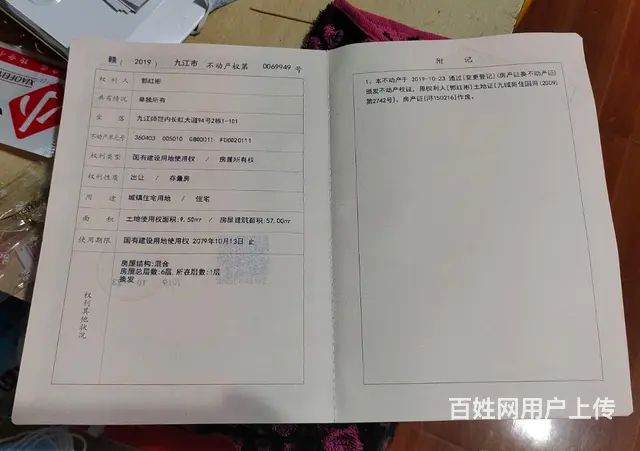 赣（2019）九江市不动产权第0069949号
权利人 郭红彬
共有情况 单独所有
坐落 九江师范内长虹大道94号2栋1-101
不动产单元号 360403 005010 GB00011 F00020111
权利类型 国有建设用地使用权 / 房屋所有权
权利性质 出让 / 存量房
用途 城镇住宅用地 / 住宅
面积 土地使用权面积:9.50㎡ / 房屋建筑面积:57.00㎡
使用期限 国有建设用地使用权 2079年10月13日 止
权利其他状况
房屋结构:混合
房屋总层数:6层,所在层数:1层
换发
附记
1、本不动产于 2019-10-23 通过[变更登记](房产证换不动产证)
颁发不动产权证，原权利人[郭红彬]土地证[九城
国用(2009)
第2742号]，房产证
作废。
百姓网用户上传